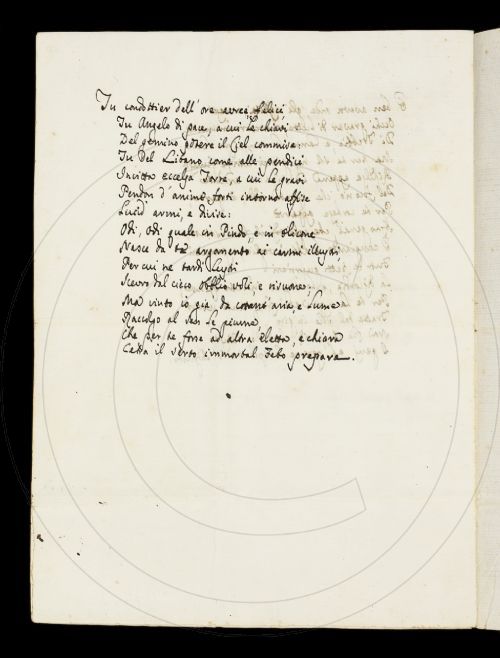 Tu condottier dell'ore auree felici
Tu Angelo di pace, a cui le chiavi
Del gemino potere il Ciel commise
Tu Del Libano come alle pendici
Invitta eccelsa Torre, a cui le gravi
Pendon d'animi forti intorno affise
Lucid' armi, e divise:
Odi, odi quale in Pindo, e in Elicona
Nasce da te argomento ai carmi illustri,
Per cui ne tardi lustri
Scevro dal cieco obblio voli, e risuone:
Ma vinto io già da cotant' aria, e lume
Raccolgo al sen le piume,
Che per te forse ad altra eletta, e chiara
Cetra il serto immortal Febo prepara.